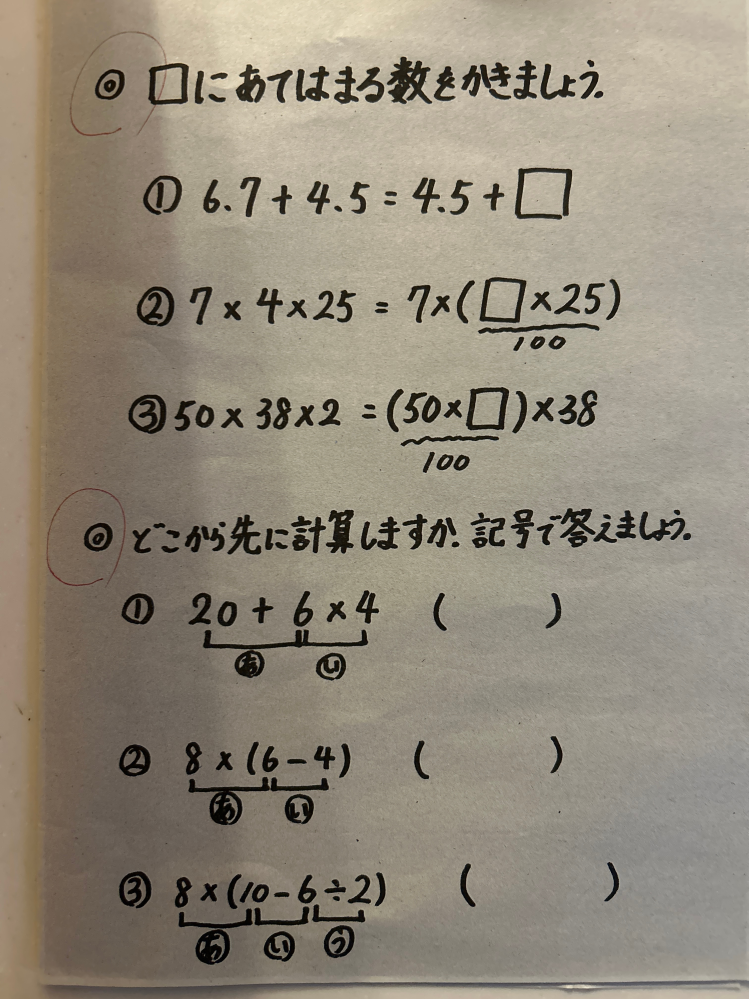 ◎ □にあてはまる数をかきましょう。
① 6.7 + 4.5 = 4.5 + □
② 7 × 4 × 25 = 7×( □ × 25 )
100
③ 50 × 38 × 2 = (50×□)×38
100
◎ どこから先に計算しますか. 記号で答えましょう。
① 20 + 6 × 4 (　　)
あ い
② 8 × (6 − 4) (　　)
あ い
③ 8 × (10 − 6 ÷ 2) (　　)
あ い う